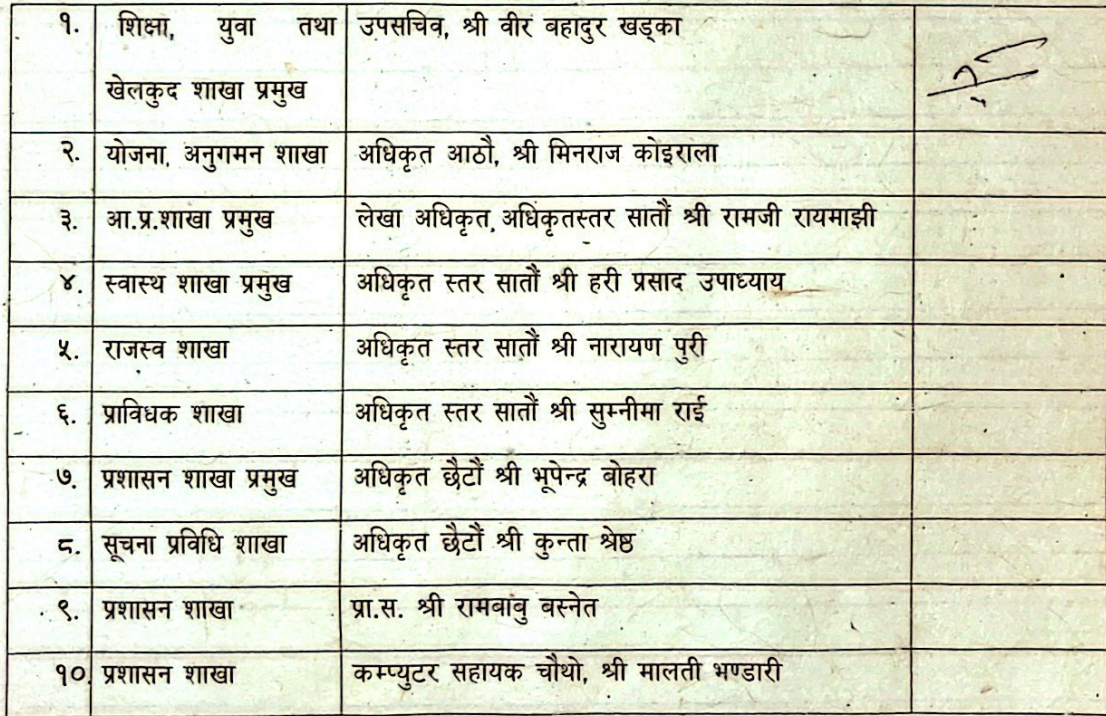 १. शिक्षा, युवा तथा उपसचिव, श्री वीर बहादुर खड्का
खेलकुद शाखा प्रमुख
२. योजना, अनुगमन शाखा अधिकृत आठौ, श्री मिनराज कोइराला
३. आ.प्र.शाखा प्रमुख लेखा अधिकृत, अधिकृतस्तर सातौं श्री रामजी रायमाझी
४. स्वास्थ शाखा प्रमुख अधिकृत स्तर सातौं श्री हरी प्रसाद उपाध्याय
५. राजस्व शाखा अधिकृत स्तर सातौं श्री नारायण पुरी
६. प्राविधक शाखा अधिकृत स्तर सातौं श्री सुम्नीमा राई
७. प्रशासन शाखा प्रमुख अधिकृत छैटौं श्री भूपेन्द्र बोहरा
८. सूचना प्रविधि शाखा अधिकृत छैटौं श्री कुन्ता श्रेष्ठ
९. प्रशासन शाखा प्रा.स. श्री रामबाबु बस्नेत
१०. प्रशासन शाखा कम्प्युटर सहायक चौथो, श्री मालती भण्डारी